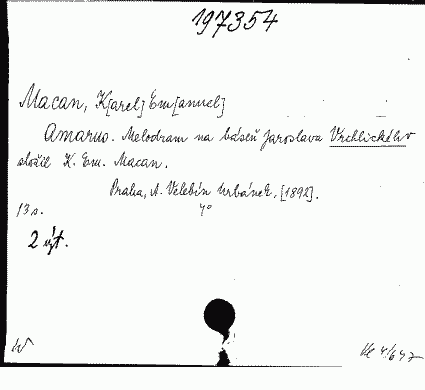 197354
Macan, K[arel] Em[anuel]
Amarus. Melodram na báseň Jaroslava Vrchlického
složil K. Em. Macan.
Praha, A. Velebín Urbánek. [1892].
13 s. 4°
2 výt.
W